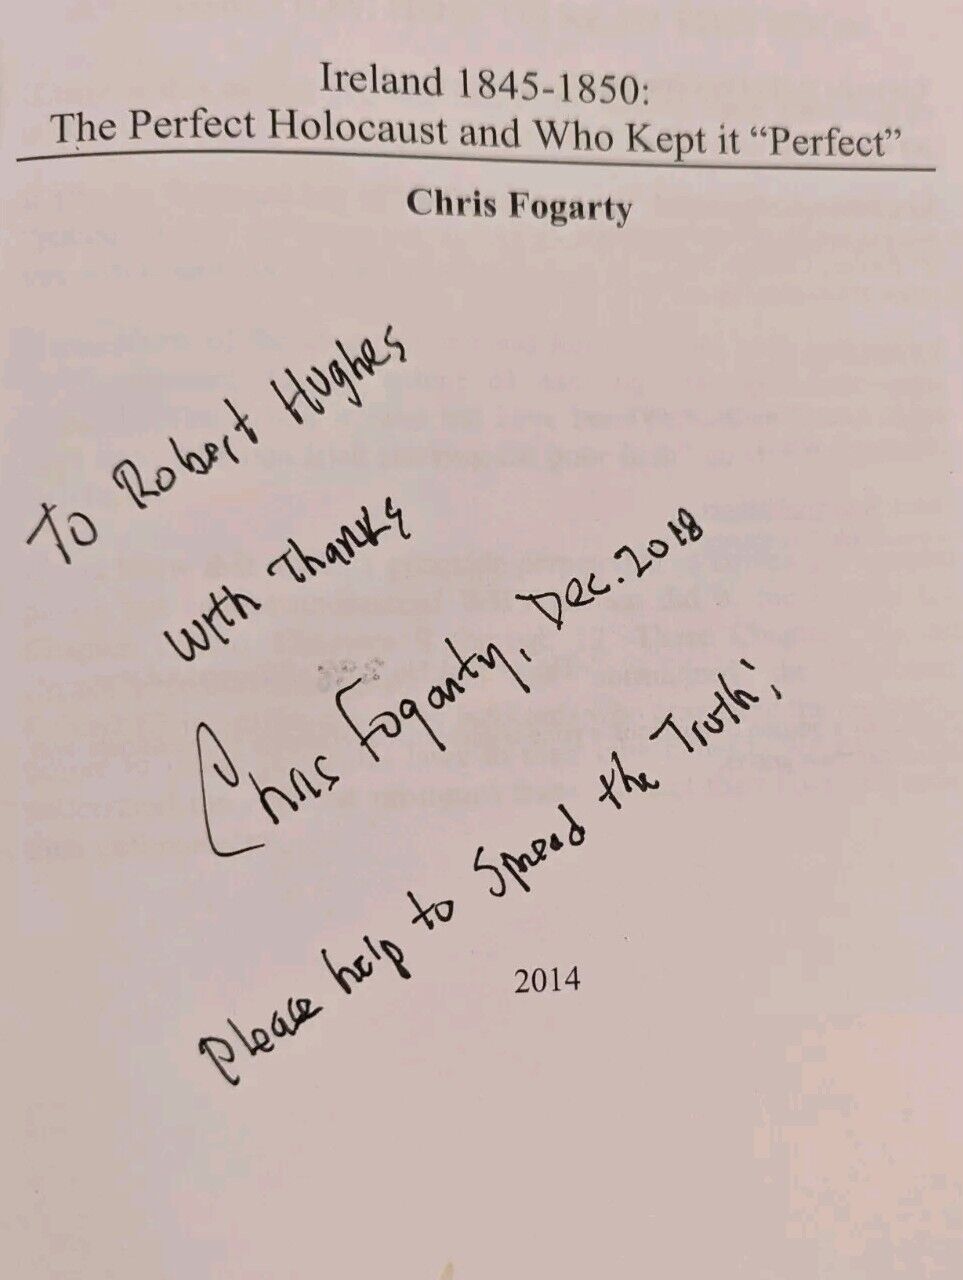 Ireland 1845-1850:
The Perfect Holocaust and Who Kept it “Perfect”
Chris Fogarty
To Robert Hughes
With Thanks
Chris Fogarty, Dec. 2018
Please help to Spread the Truth;
2014